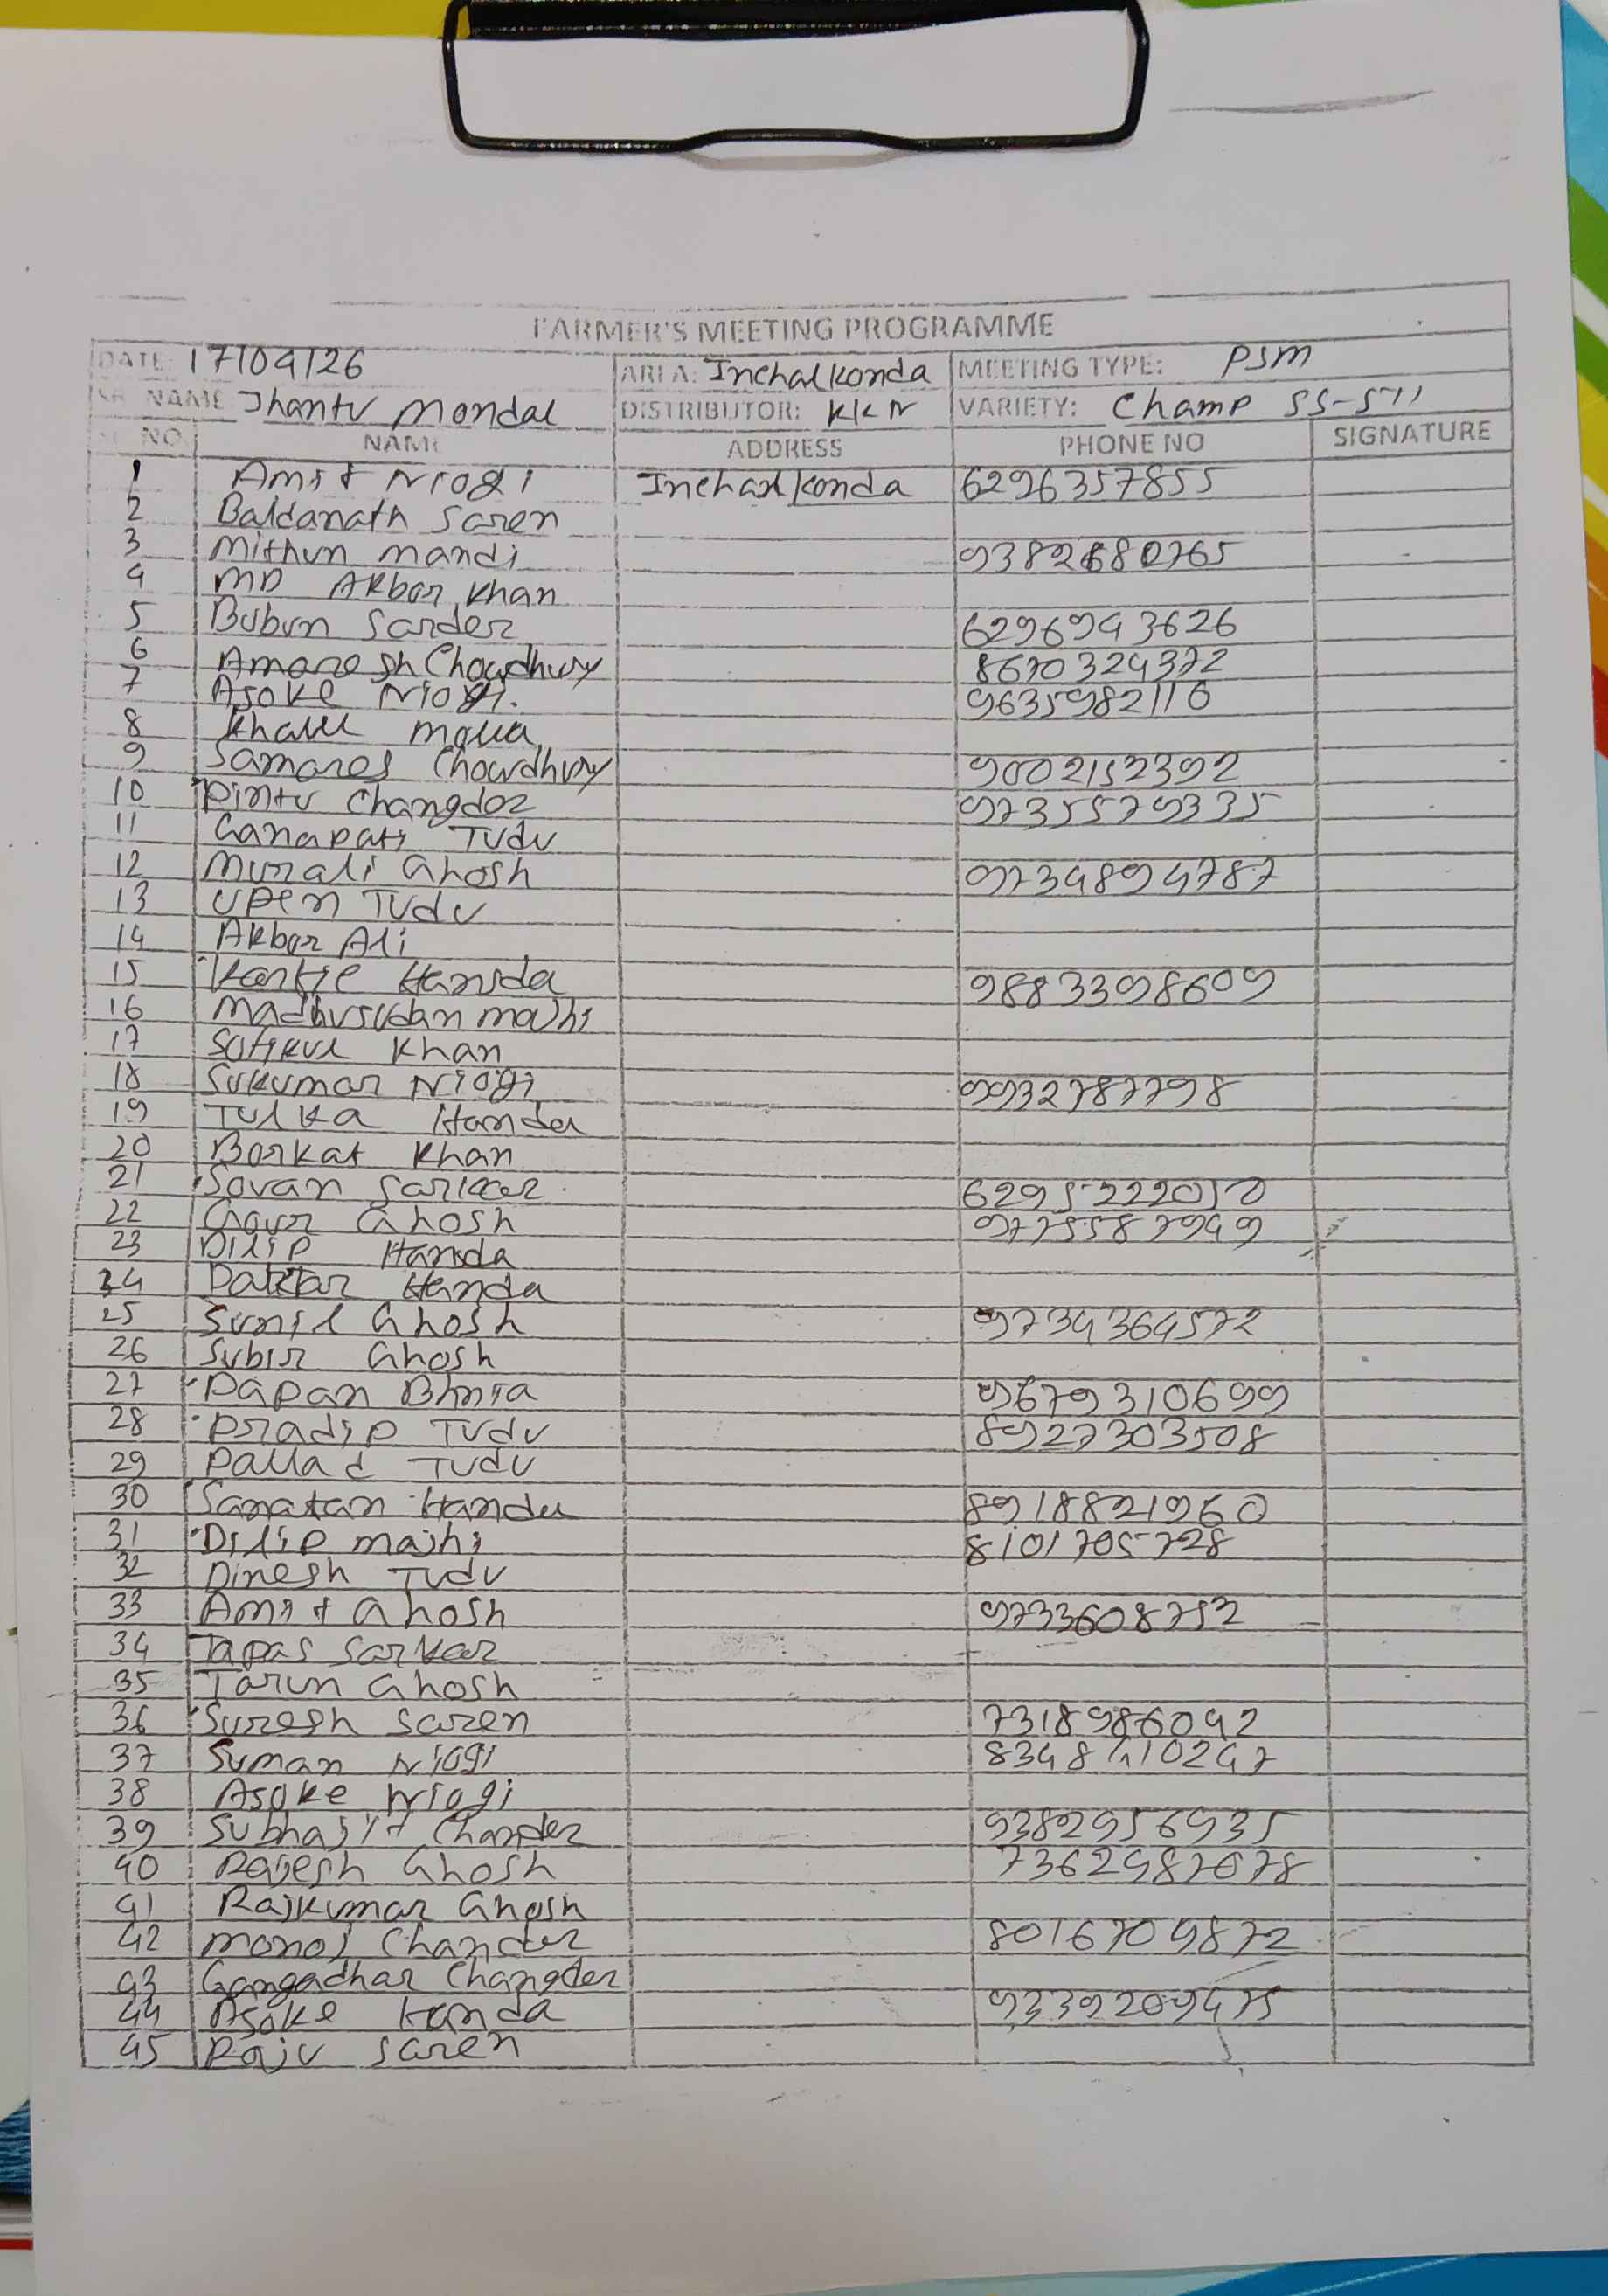 FARMER'S MEETING PROGRAMME
DATE: 17/04/26 AREA: Inchalkonda MEETING TYPE: PSM
SR. NAME Jhantu Mondal DISTRIBUTOR: KKN VARIETY: Champ SS-511
SL NO. NAME ADDRESS PHONE NO SIGNATURE
1 Amit Niogi Inchalkonda 6296357855
2 Baldanath Saren
3 Mithun Mandi 9382680765
4 MD Akbar Khan
5 Bubun Sarder 6296943626
6 Amaresh Chowdhury 8670324372
7 Asoke Niogi. 9635982110
8 Khalil
9 Samares Chowdhury 9002152392
10 Pintu Changdar 9735579335
11 Ganapati Tudu
12 Murali Ghosh 9734894787
13 Upen Tudu
14 Akbar Ali
15 Kartic Hansda 9883398609
16 Madhusudan Majhi
17 Khan
18 Sukumar Niogi 9932787798
19 Tulka Handa
20 Borkat Khan
21 Sovan Sarkar 6295222050
22 Gour Ghosh 9775587949
23 Dilip Hansda
24 Handa
25 Sunil Ghosh 9734364572
26 Subir Ghosh
27 Papan 9679310699
28 Pradip Tudu 8927303508
29 Tudu
30 Sanatan Handa 8918821960
31 Dilip Majhi 8101705728
32 Dinesh Tudu
33 Amit Ghosh 9733608752
34 Tapas Sarkar
35 Tarun Ghosh
36 Suresh Saren 7318986042
37 Suman Niogi
38 Asoke Niogi
39 Subhajit Chander 9382956935
40 Rajesh Ghosh 7362987078
41 Rajkumar Ghosh
42 Monoj Chander 8016709872
43 Gangadhar Changder
44 Asoke Handa 9339209475
45 Raju Saren